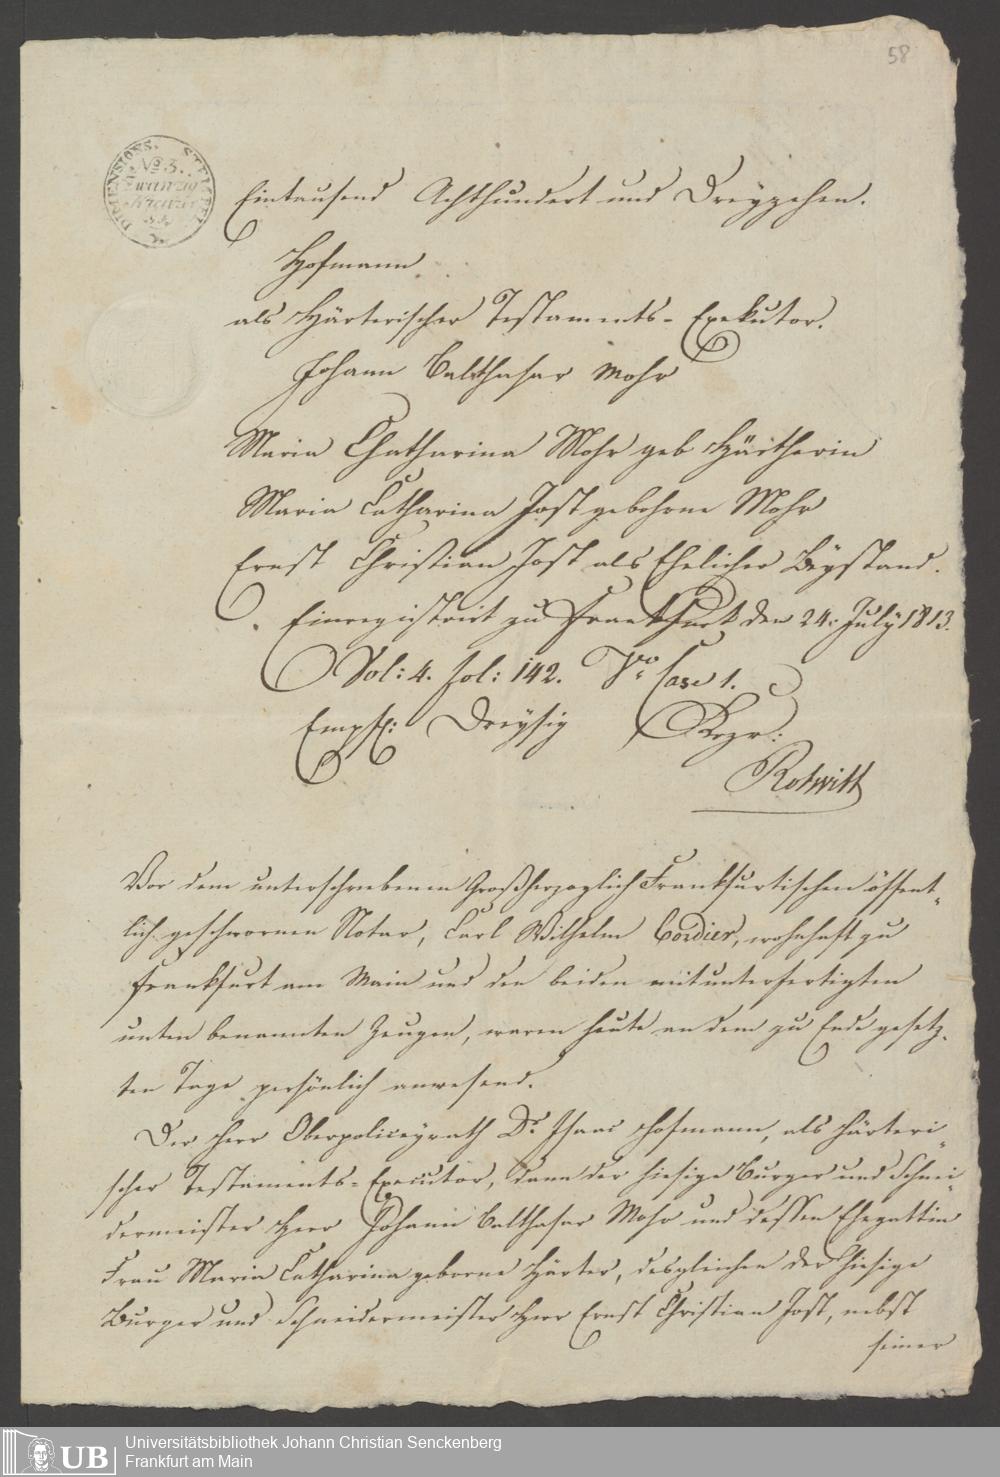 58
DIMENSIONS. STEMPEL
No 3.
Zwanzig
Kreuzer
Eintausend Achthundert und Dreyzehen.
Hofmann
als Härterischer Testaments-Exekutor.
Johann Balthasar Mohr
Maria Chatharina Mohr geb Härtherin
Maria Catharina Jost gebohrne Mohr
Ernst Christian Jost als Ehelicher Beystand.
Einregistrirt zu Frankfurt den 24. July 1813.
Vol: 4. fol: 142. Vo. Case 1.
Empf: Dreysig Krzr:
Rotwitt
Vor dem unterschriebenen Großherzoglich Frankfurtischen öffent-
lich geschwornen Notar, Carl Wilhelm Cordier, wohnhaft zu
Frankfurt am Main und den beiden mitunterfertigten
unten benannten Zeugen, waren heute an dem zu Ende gesetz-
ten Tage persönlich anwesend.
Der Herr Oberpolizeyrath Dr. Isaac Hofmann, als Härteri-
scher Testaments-Executor, dann der hiesige Burger und Schnei-
dermeister Herr Johann Balthasar Mohr und dessen Ehegattin
Frau Maria Catharina geborne Härter, desgleichen der hiesige
Burger und Schneidermeister Herr Ernst Christian Jost, nebst
seiner
UB
Universitätsbibliothek Johann Christian Senckenberg
Frankfurt am Main